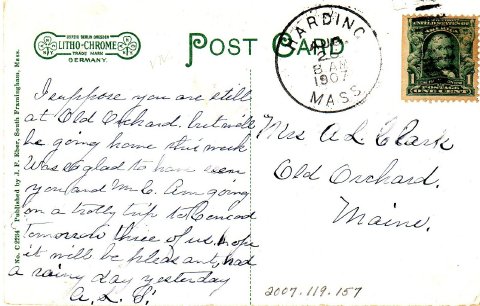 NEW YORK BERLIN DRESDEN
LITHO-CHROME
TRADE MARK
GERMANY.
POST CARD
HARDING
AUG
8 AM
1907
MASS
UNITED STATES OF AMERICA
1 1
POSTAGE
ONE CENT
No. C2234 Published by J. F. Eber, South Framingham, Mass.
I suppose you are still
at Old Orchard. but will
be going home this week
Was so glad to have seen
you and Mr C. Am going
on a trolly trip to Concord
Tomorrow three of us. hope
it will be pleasant, had
a rainy day yesterday
A. L. S.
Mrs A L Clark
Old Orchard.
Maine.
2007.119.157